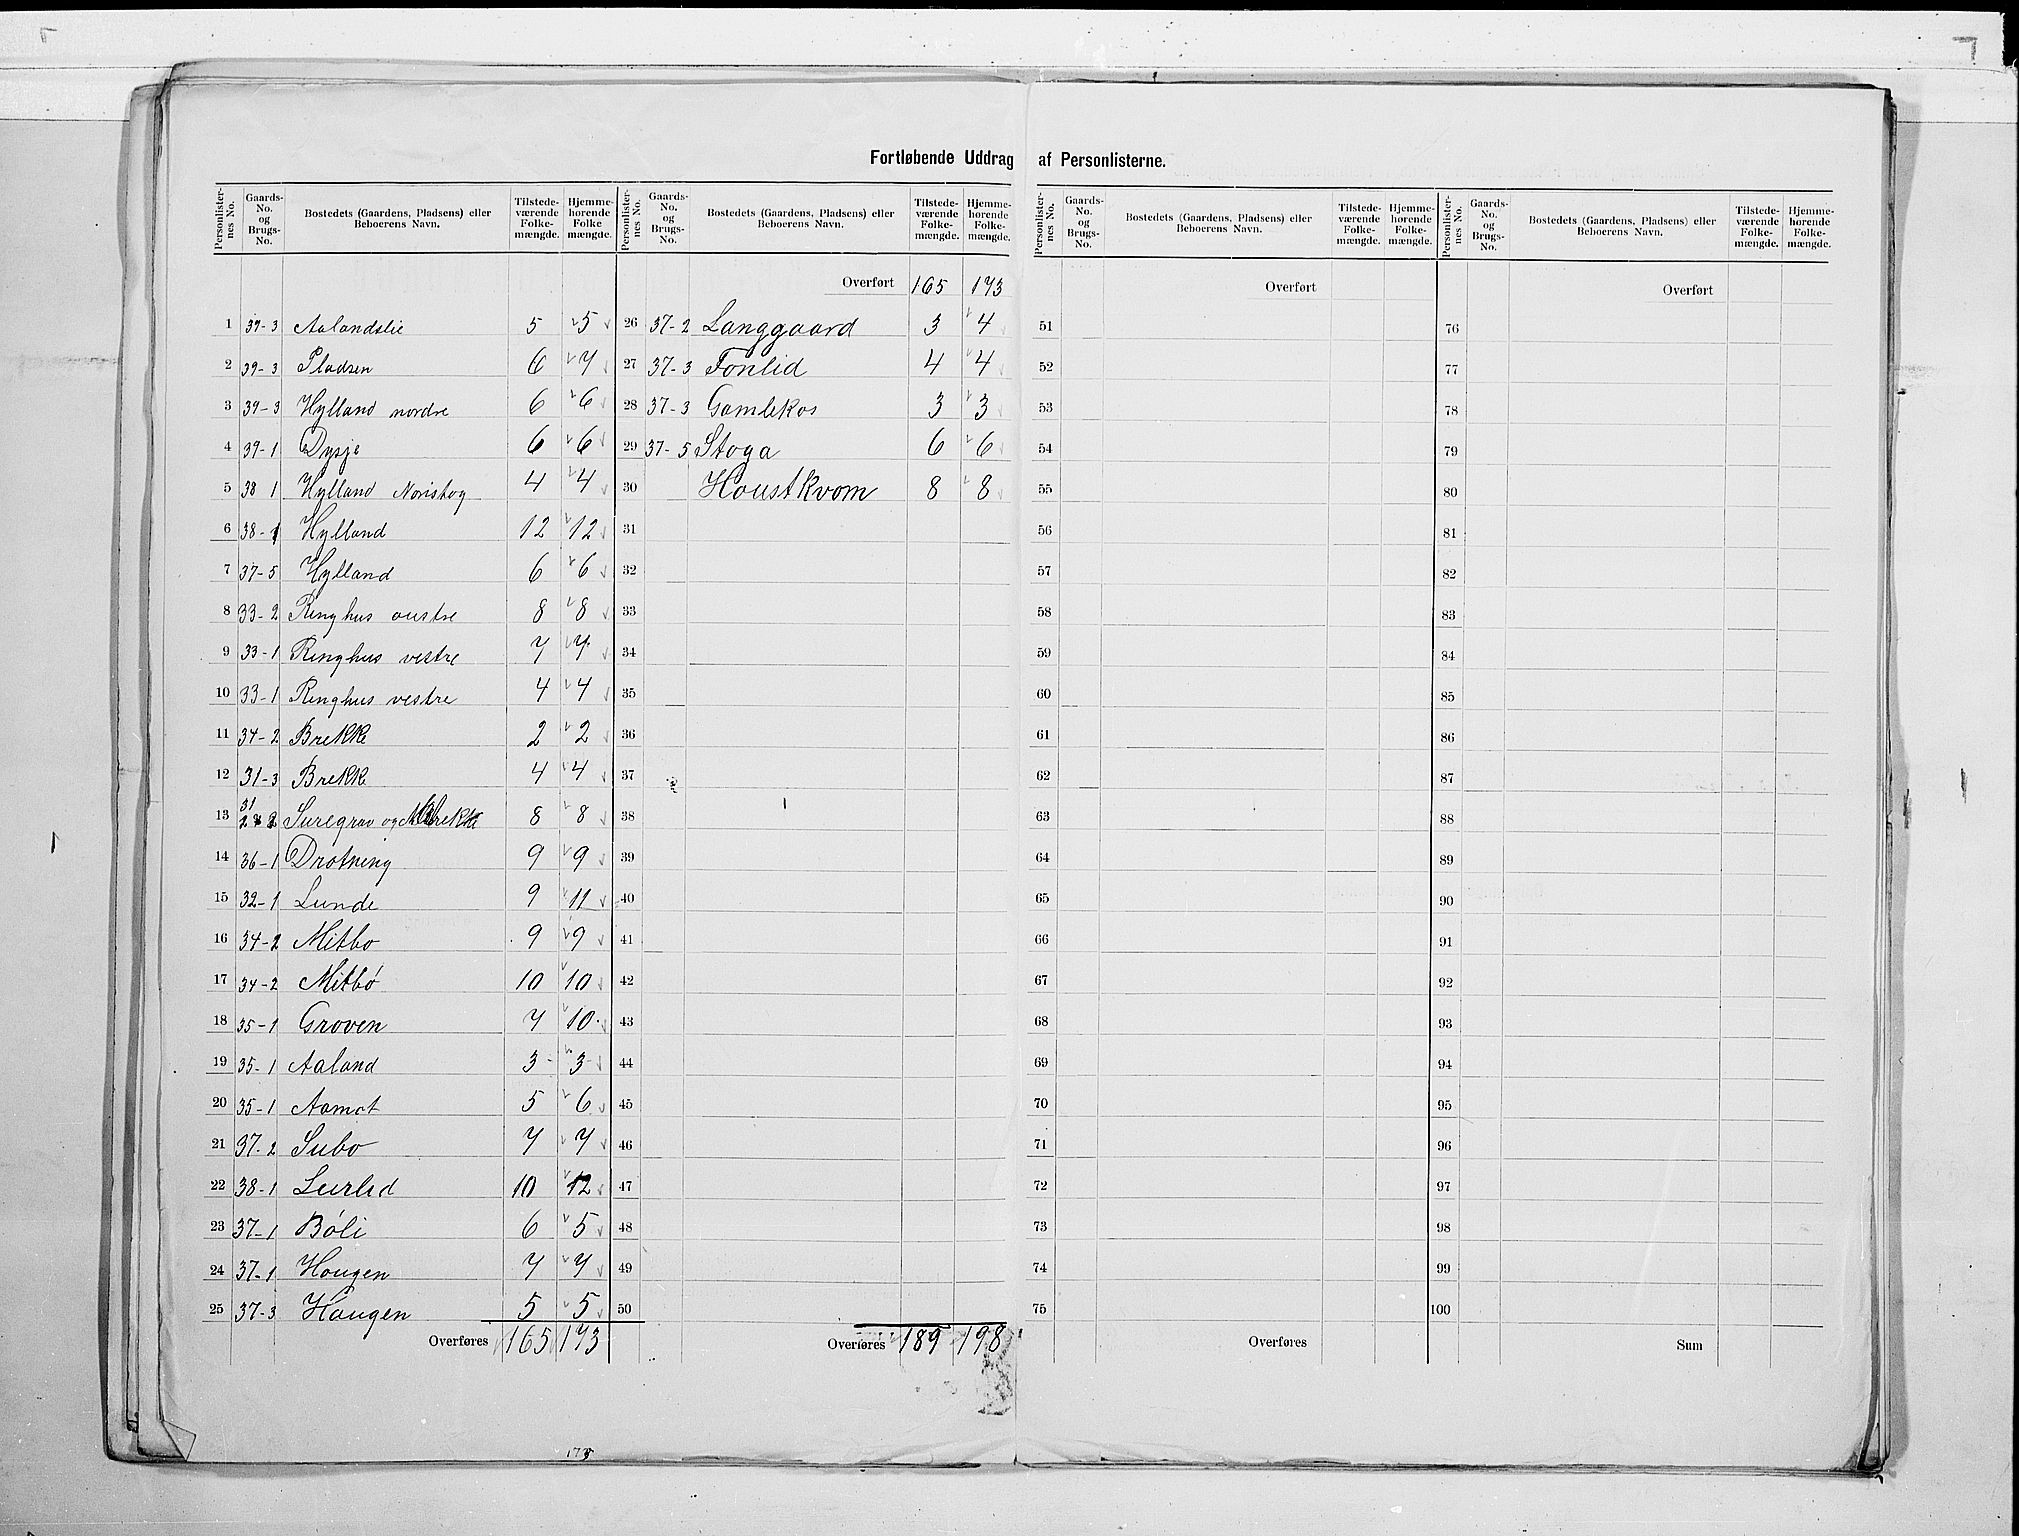 Fortløbende Uddrag af Personlisterne.
Personlisternes No. Gaards-No. og Brugs-No. Bostedets (Gaardens, Pladsens) eller Beboerens Navn. Tilstedeværende Folkemængde. Hjemmehørende Folkemængde.
1 39-3 Aalandslie 5 5
2 39-3 Pladsen 6 7
3 39-3 Hylland nordre 6 6
4 39-1 Dysje 6 6
5 38 1 Hylland Noristog 4 4
6 38-1 Hylland 12 12
7 37-5 Hylland 6 6
8 33-2 Ringhus austre 8 8
9 33-1 Ringhus vestre 7 7
10 33-1 Ringhus vestre 4 4
11 34-2 Brekke 2 2
12 31-3 Brekke 4 4
13 31 Suregrav og 8 8
14 36-1 Drotning 9 9
15 32-1 Lunde 9 11
16 34-2 Mitbo 9 9
17 34-2 Mitbø 10 10
18 35-1 Groven 7 10
19 35-1 Aaland 3 3
20 35-1 Aamot 5 6
21 37-2 Subo 7 7
22 38-1 Leirlid 10 12
23 37-1 Bøli 6 5
24 37-1 Haugen 7 7
25 37-3 Haugen 5 5
Overføres 165 173
Personlisternes No. Gaards-No. og Brugs-No. Bostedets (Gaardens, Pladsens) eller Beboerens Navn. Tilstedeværende Folkemængde. Hjemmehørende Folkemængde.
Overført 165 173
26 37-2 Langgaard 3 4
27 37-3 Fonlid 4 4
28 37-3 Gamlekas 3 3
29 37-5 Stoga 6 6
30 Haustkvam 8 8
31
32
33
34
35
36
37
38
39
40
41
42
43
44
45
46
47
48
49
50
Overføres 189 198
Personlisternes No. Gaards-No. og Brugs-No. Bostedets (Gaardens, Pladsens) eller Beboerens Navn. Tilstedeværende Folkemængde. Hjemmehørende Folkemængde.
Overført
51
52
53
54
55
56
57
58
59
60
61
62
63
64
65
66
67
68
69
70
71
72
73
74
75
Overføres
Personlisternes No. Gaards-No. og Brugs-No. Bostedets (Gaardens, Pladsens) eller Beboerens Navn. Tilstedeværende Folkemængde. Hjemmehørende Folkemængde.
Overført
76
77
78
79
80
81
82
83
84
85
86
87
88
89
90
91
92
93
94
95
96
97
98
99
100
Sum